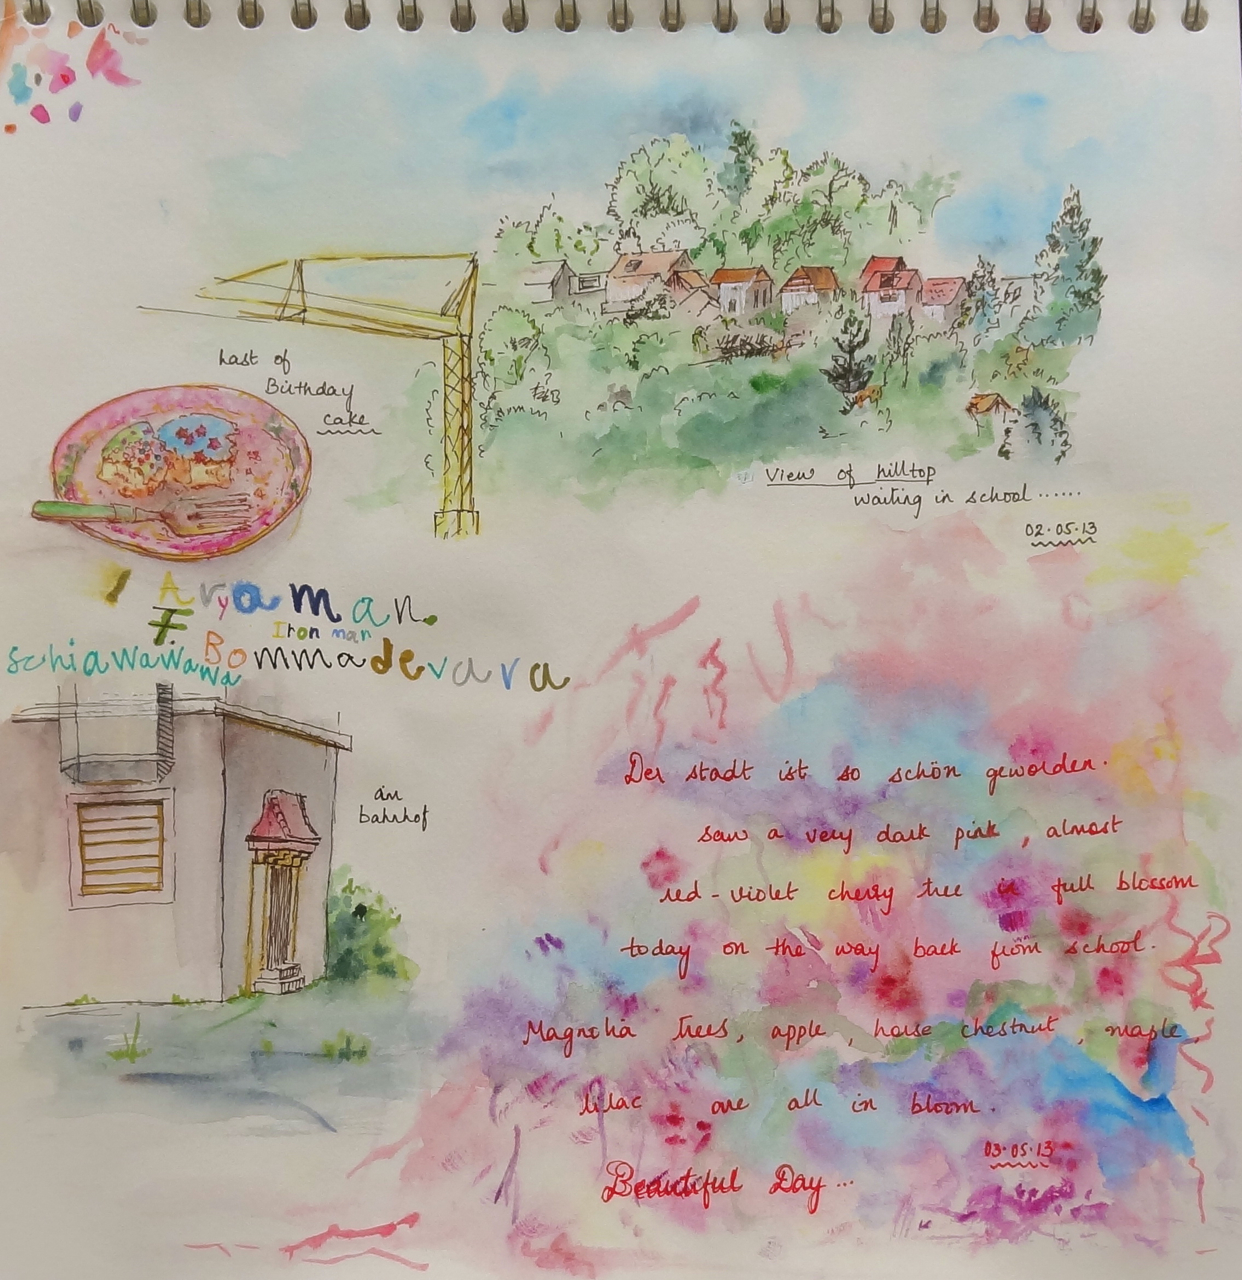 Last of
Birthday
cake
View of hilltop
waiting in school......
02.05.13
Aryaman.
Iron man
schiawawawawa
Bommadevara
am
bahnhof
Der stadt ist so schön geworden.
saw a very dark pink, almost
red-violet cherry tree in full blossom
today on the way back from school.
Magnolia trees, apple, horse chestnut, maple,
lilac are all in bloom.
03.05.13
Beautiful Day...